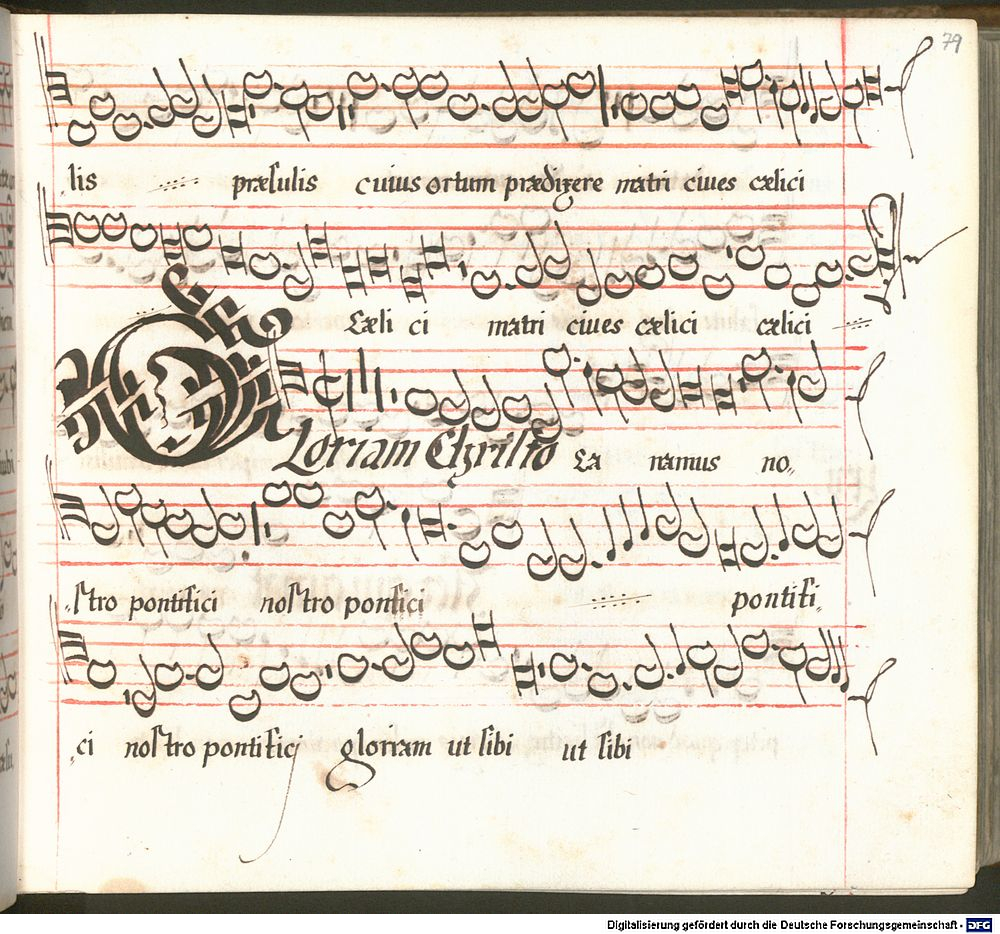 79
lis præsulis cuius ortum prædixere matri ciues cælici
Cæli ci matri ciues cælici cælici
Gloriam Christo Ca namus no„
„stro pontifici nostro pontifici pontifi„
„ci nostro pontifici gloriam ut sibi ut sibi
Digitalisierung gefördert durch die Deutsche Forschungsgemeinschaft - DFG